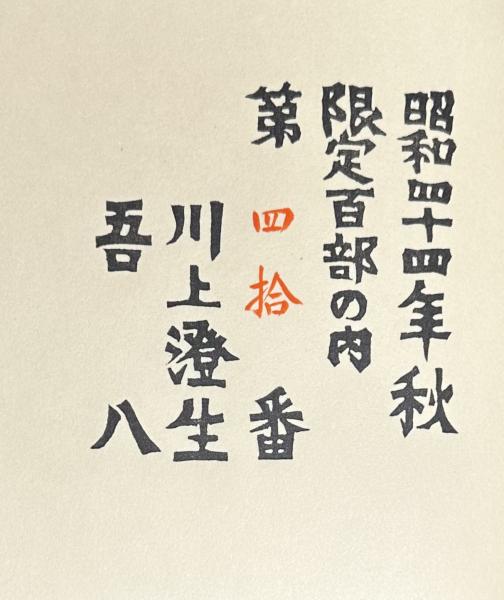 昭和四十四年秋
限定百部の内
第四拾番
川上澄生
吾八